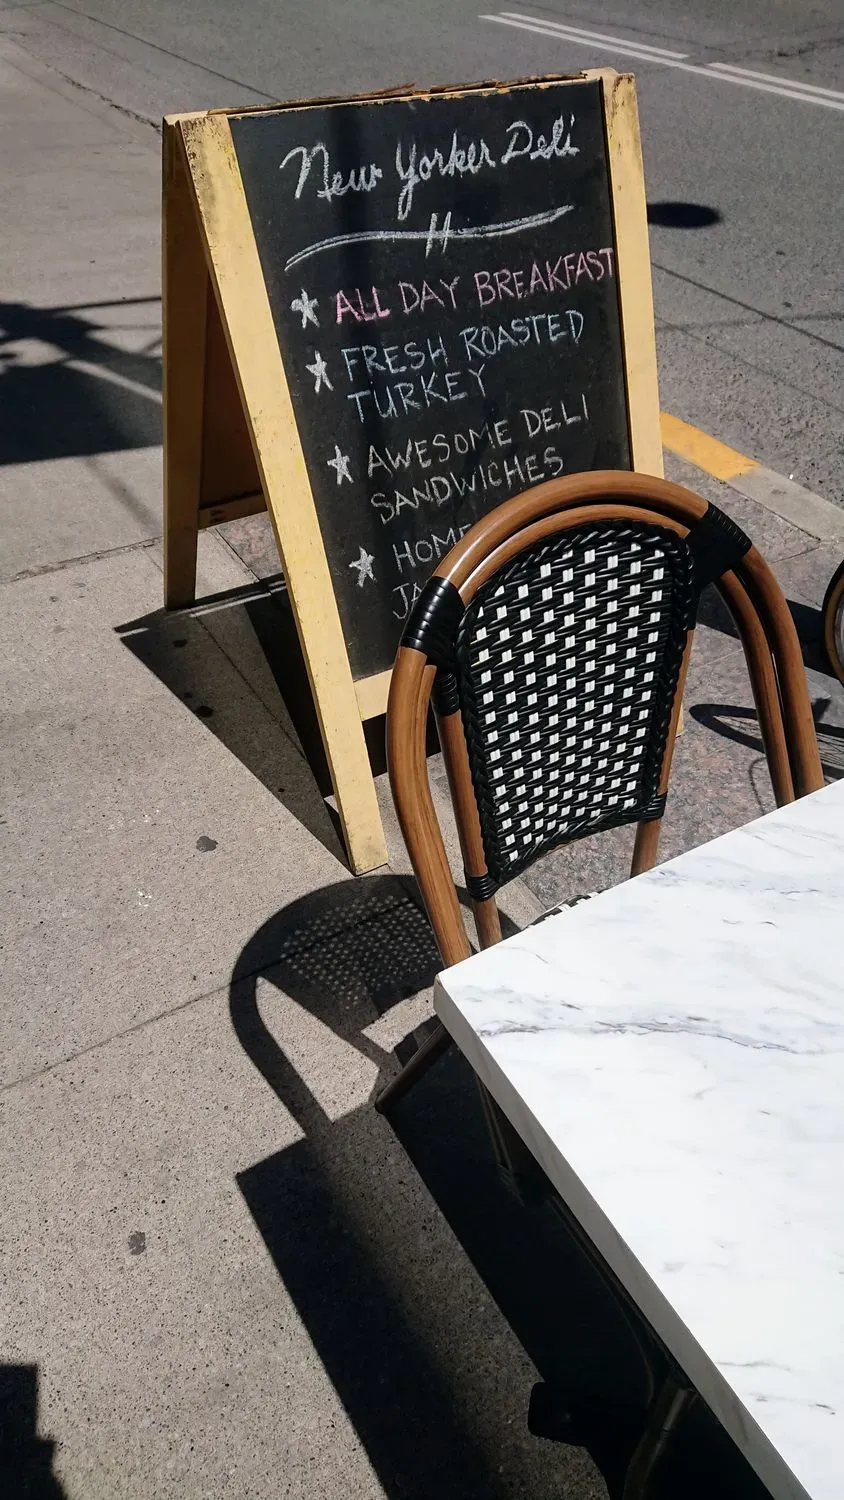 New Yorker Deli
ALL DAY BREAKFAST
FRESH ROASTED
TURKEY
AWESOME DELI
SANDWICHES